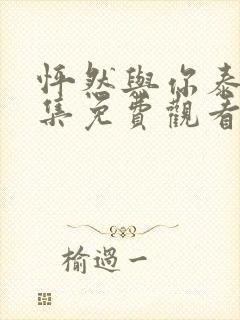 怦然與你泰
集免費觀看
榆過一